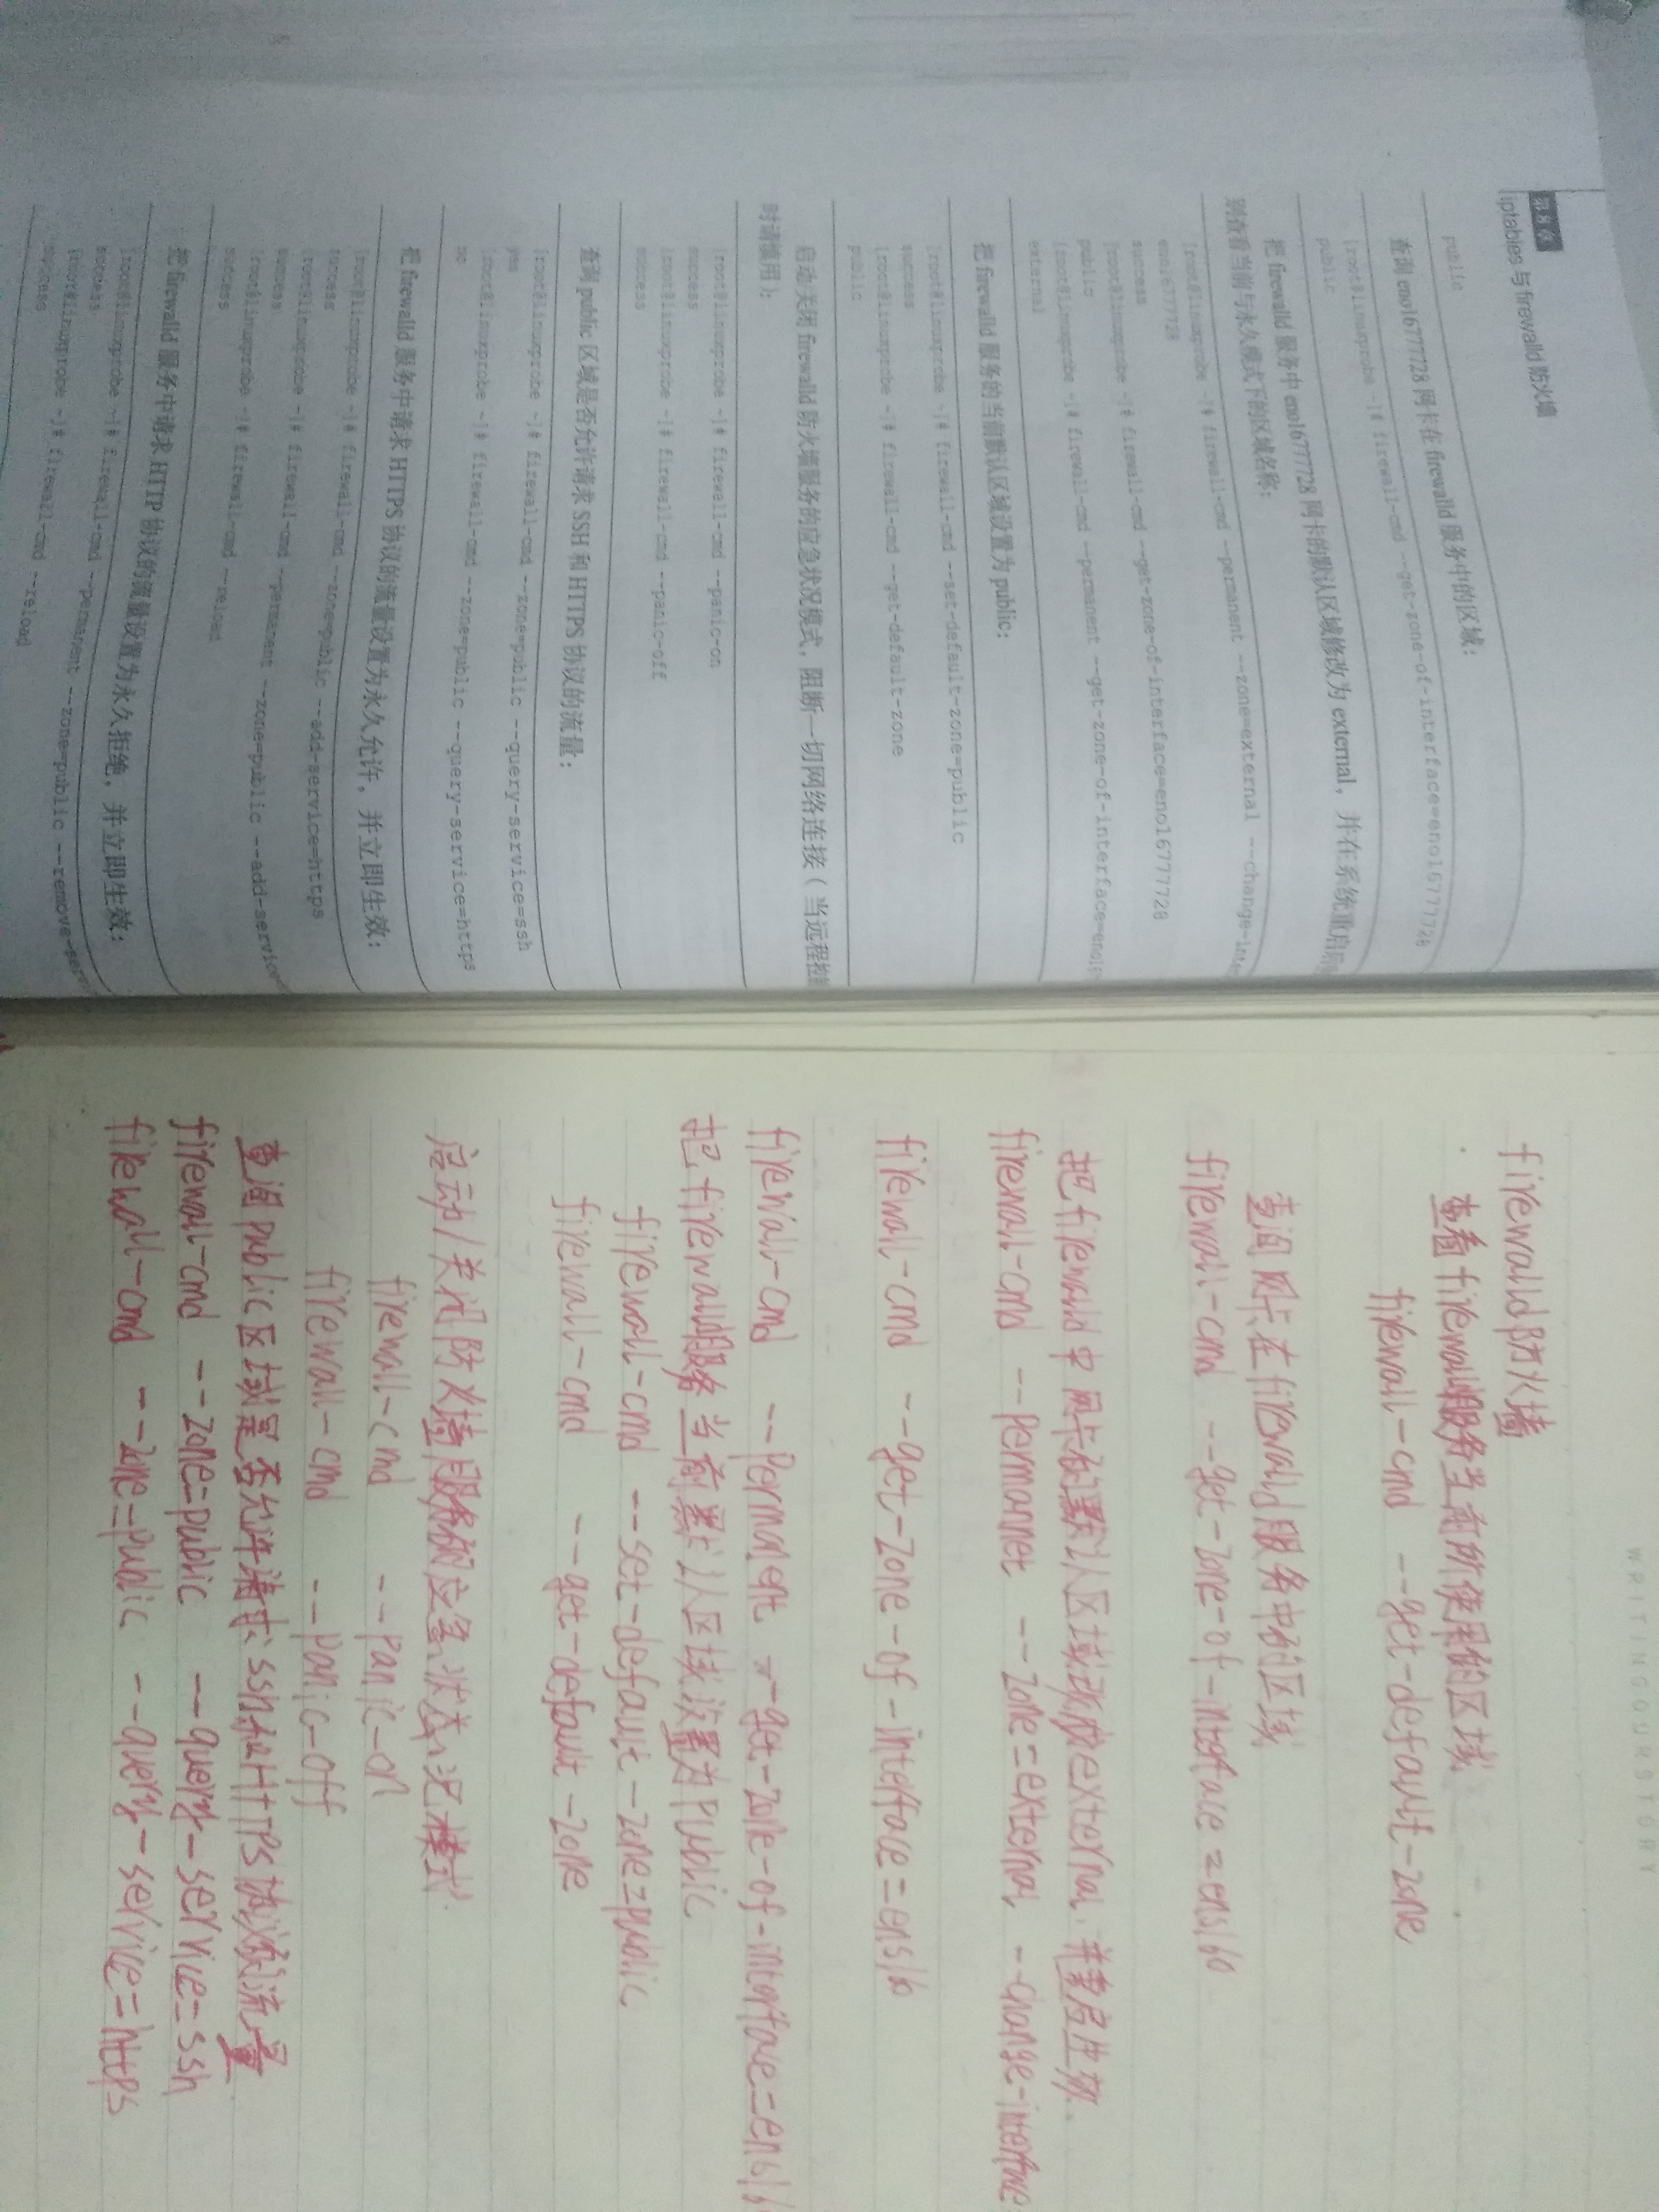 第8章
iptables 与 firewalld 防火墙
public
查询 eno16777728 网卡在 firewalld 服务中的区域:
[root@linuxprobe ~]# firewall-cmd --get-zone-of-interface=eno16777728
public
把 firewalld 服务中 eno16777728 网卡的默认区域修改为 external, 并在系统重启后
别查看当前与永久模式下的区域名称:
[root@linuxprobe ~]# firewall-cmd --permanent --zone=external --change-inte
eno16777728
success
[root@linuxprobe ~]# firewall-cmd --get-zone-of-interface=eno16777728
public
[root@linuxprobe ~]# firewall-cmd --permanent --get-zone-of-interface=eno16
external
把 firewalld 服务的当前默认区域设置为 public:
[root@linuxprobe ~]# firewall-cmd --set-default-zone=public
success
[root@linuxprobe ~]# firewall-cmd --get-default-zone
public
启动关闭 firewalld 防火墙服务的应急状况模式, 阻断一切网络连接 ( 当远程控
时请慎用 ):
[root@linuxprobe ~]# firewall-cmd --panic-on
success
[root@linuxprobe ~]# firewall-cmd --panic-off
success
查询 public 区域是否允许请求 SSH 和 HTTPS 协议的流量:
[root@linuxprobe ~]# firewall-cmd --zone=public --query-service=ssh
yes
[root@linuxprobe ~]# firewall-cmd --zone=public --query-service=https
no
把 firewalld 服务中请求 HTTPS 协议的流量设置为永久允许, 并立即生效:
[root@linuxprobe ~]# firewall-cmd --zone=public --add-service=https
success
[root@linuxprobe ~]# firewall-cmd --permanent --zone=public --add-service
success
[root@linuxprobe ~]# firewall-cmd --reload
success
把 firewalld 服务中请求 HTTP 协议的流量设置为永久拒绝, 并立即生效:
[root@linuxprobe ~]# firewall-cmd --permanent --zone=public --remove-serv
success
[root@linuxprobe ~]# firewall-cmd --reload
success
WRITINGOURSTORY
firewalld防火墙
查看firewalld服务当前所使用的区域
firewall-cmd --get-default-zone
查询网卡在firewalld服务中的区域
firewall-cmd --get-zone-of-interface=ens160
把firewalld中网卡的默认区域改成external,并重启生效.
firewall-cmd --permannet --zone=external --change-interface
firewall-cmd --get-zone-of-interface=ens16
firewall-cmd --Permanent --get-zone-of-interface=ens16
把firewalld服务当前默认区域设置为Public
firewall-cmd --set-default-zone=public
firewall-cmd --get-default-zone
启动/关闭防火墙服务的应急状态况模式
firewall-cmd --panic-on
firewall-cmd --panic-off
查询public区域是否允许请求ssh和HTTPS协议的流量
firewall-cmd --zone=public --query-service=ssh
firewall-cmd --zone=public --query-service=https